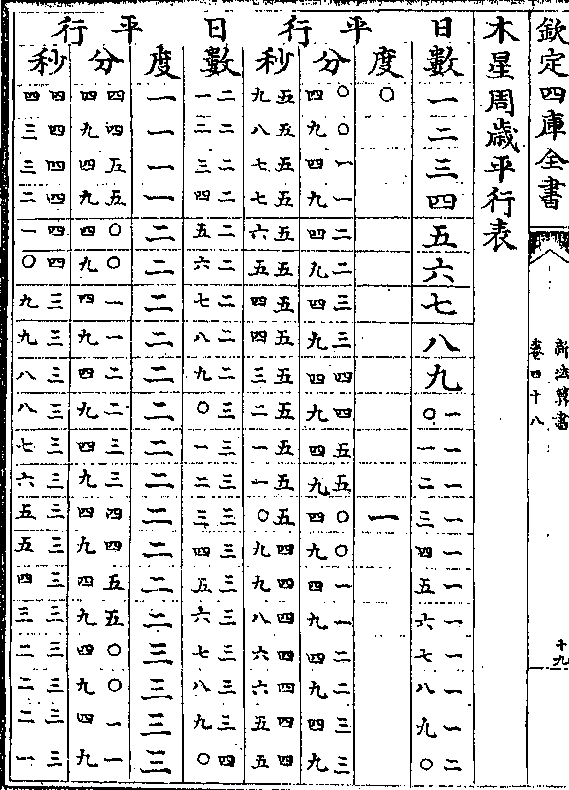 欽定四庫全書
新法算書
卷四十八
十九
木星周歳平行表
日數 平行 度 分 秒 日數 平行 度 分 秒
一 〇 〇四 五九 二一 一 四四 四四
二 〇九 五八 二二 一 四九 四三
三 一四 五七 二三 一 五四 四三
四 一九 五七 二四 一 五九 四二
五 二四 五六 二五 二 〇四 四一
六 二九 五五 二六 二 〇九 四〇
七 三四 五四 二七 二 一四 三九
八 三九 五四 二八 二 一九 三九
九 四四 五三 二九 二 二四 三八
一〇 四九 五二 三〇 二 二九 三八
一一 五四 五一 三一 二 三四 三七
一二 五九 五一 三二 二 三九 三六
一三 一 〇四 五〇 三三 二 四四 三五
一四 〇九 四九 三四 二 四九 三五
一五 一四 四九 三五 二 五四 三四
一六 一九 四八 三六 二 五九 三三
一七 二四 四六 三七 三 〇四 三二
一八 二九 四六 三八 三 〇九 三二
一九 三四 四五 三九 三 一四 三二
二〇 三九 四五 四〇 三 一九 三一